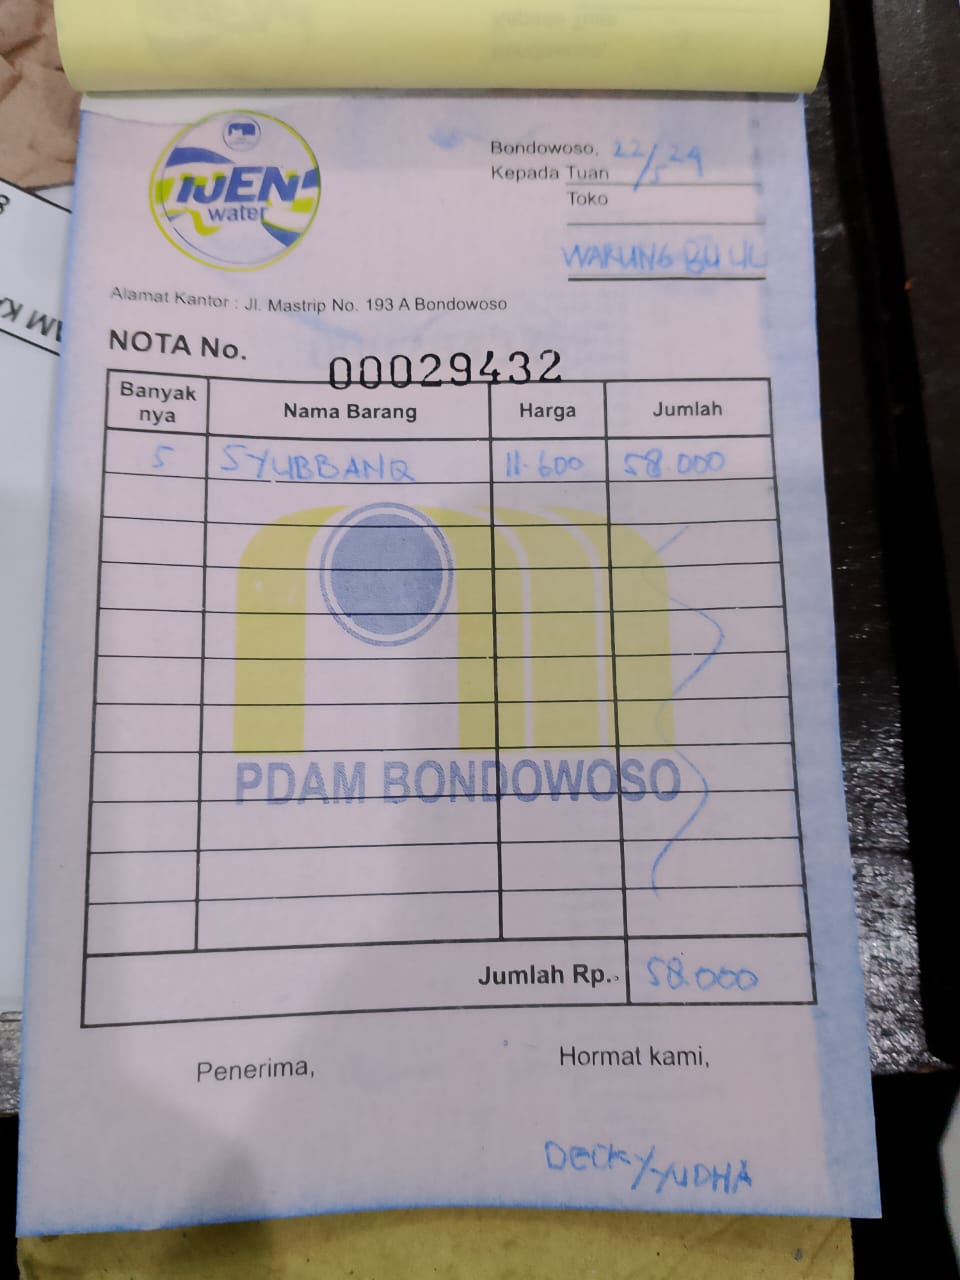 IJEN
water
Bondowoso, 22/5 24
Kepada Tuan
Toko
WARUNG BU UL
Alamat Kantor : Jl. Mastrip No. 193 A Bondowoso
NOTA No. 00029432
Banyak nya Nama Barang Harga Jumlah
5 SYUBBANQ 11.600 58.000
PDAM BONDOWOSO
Jumlah Rp. 58.000
Penerima, Hormat kami,
DECKY YUDHA